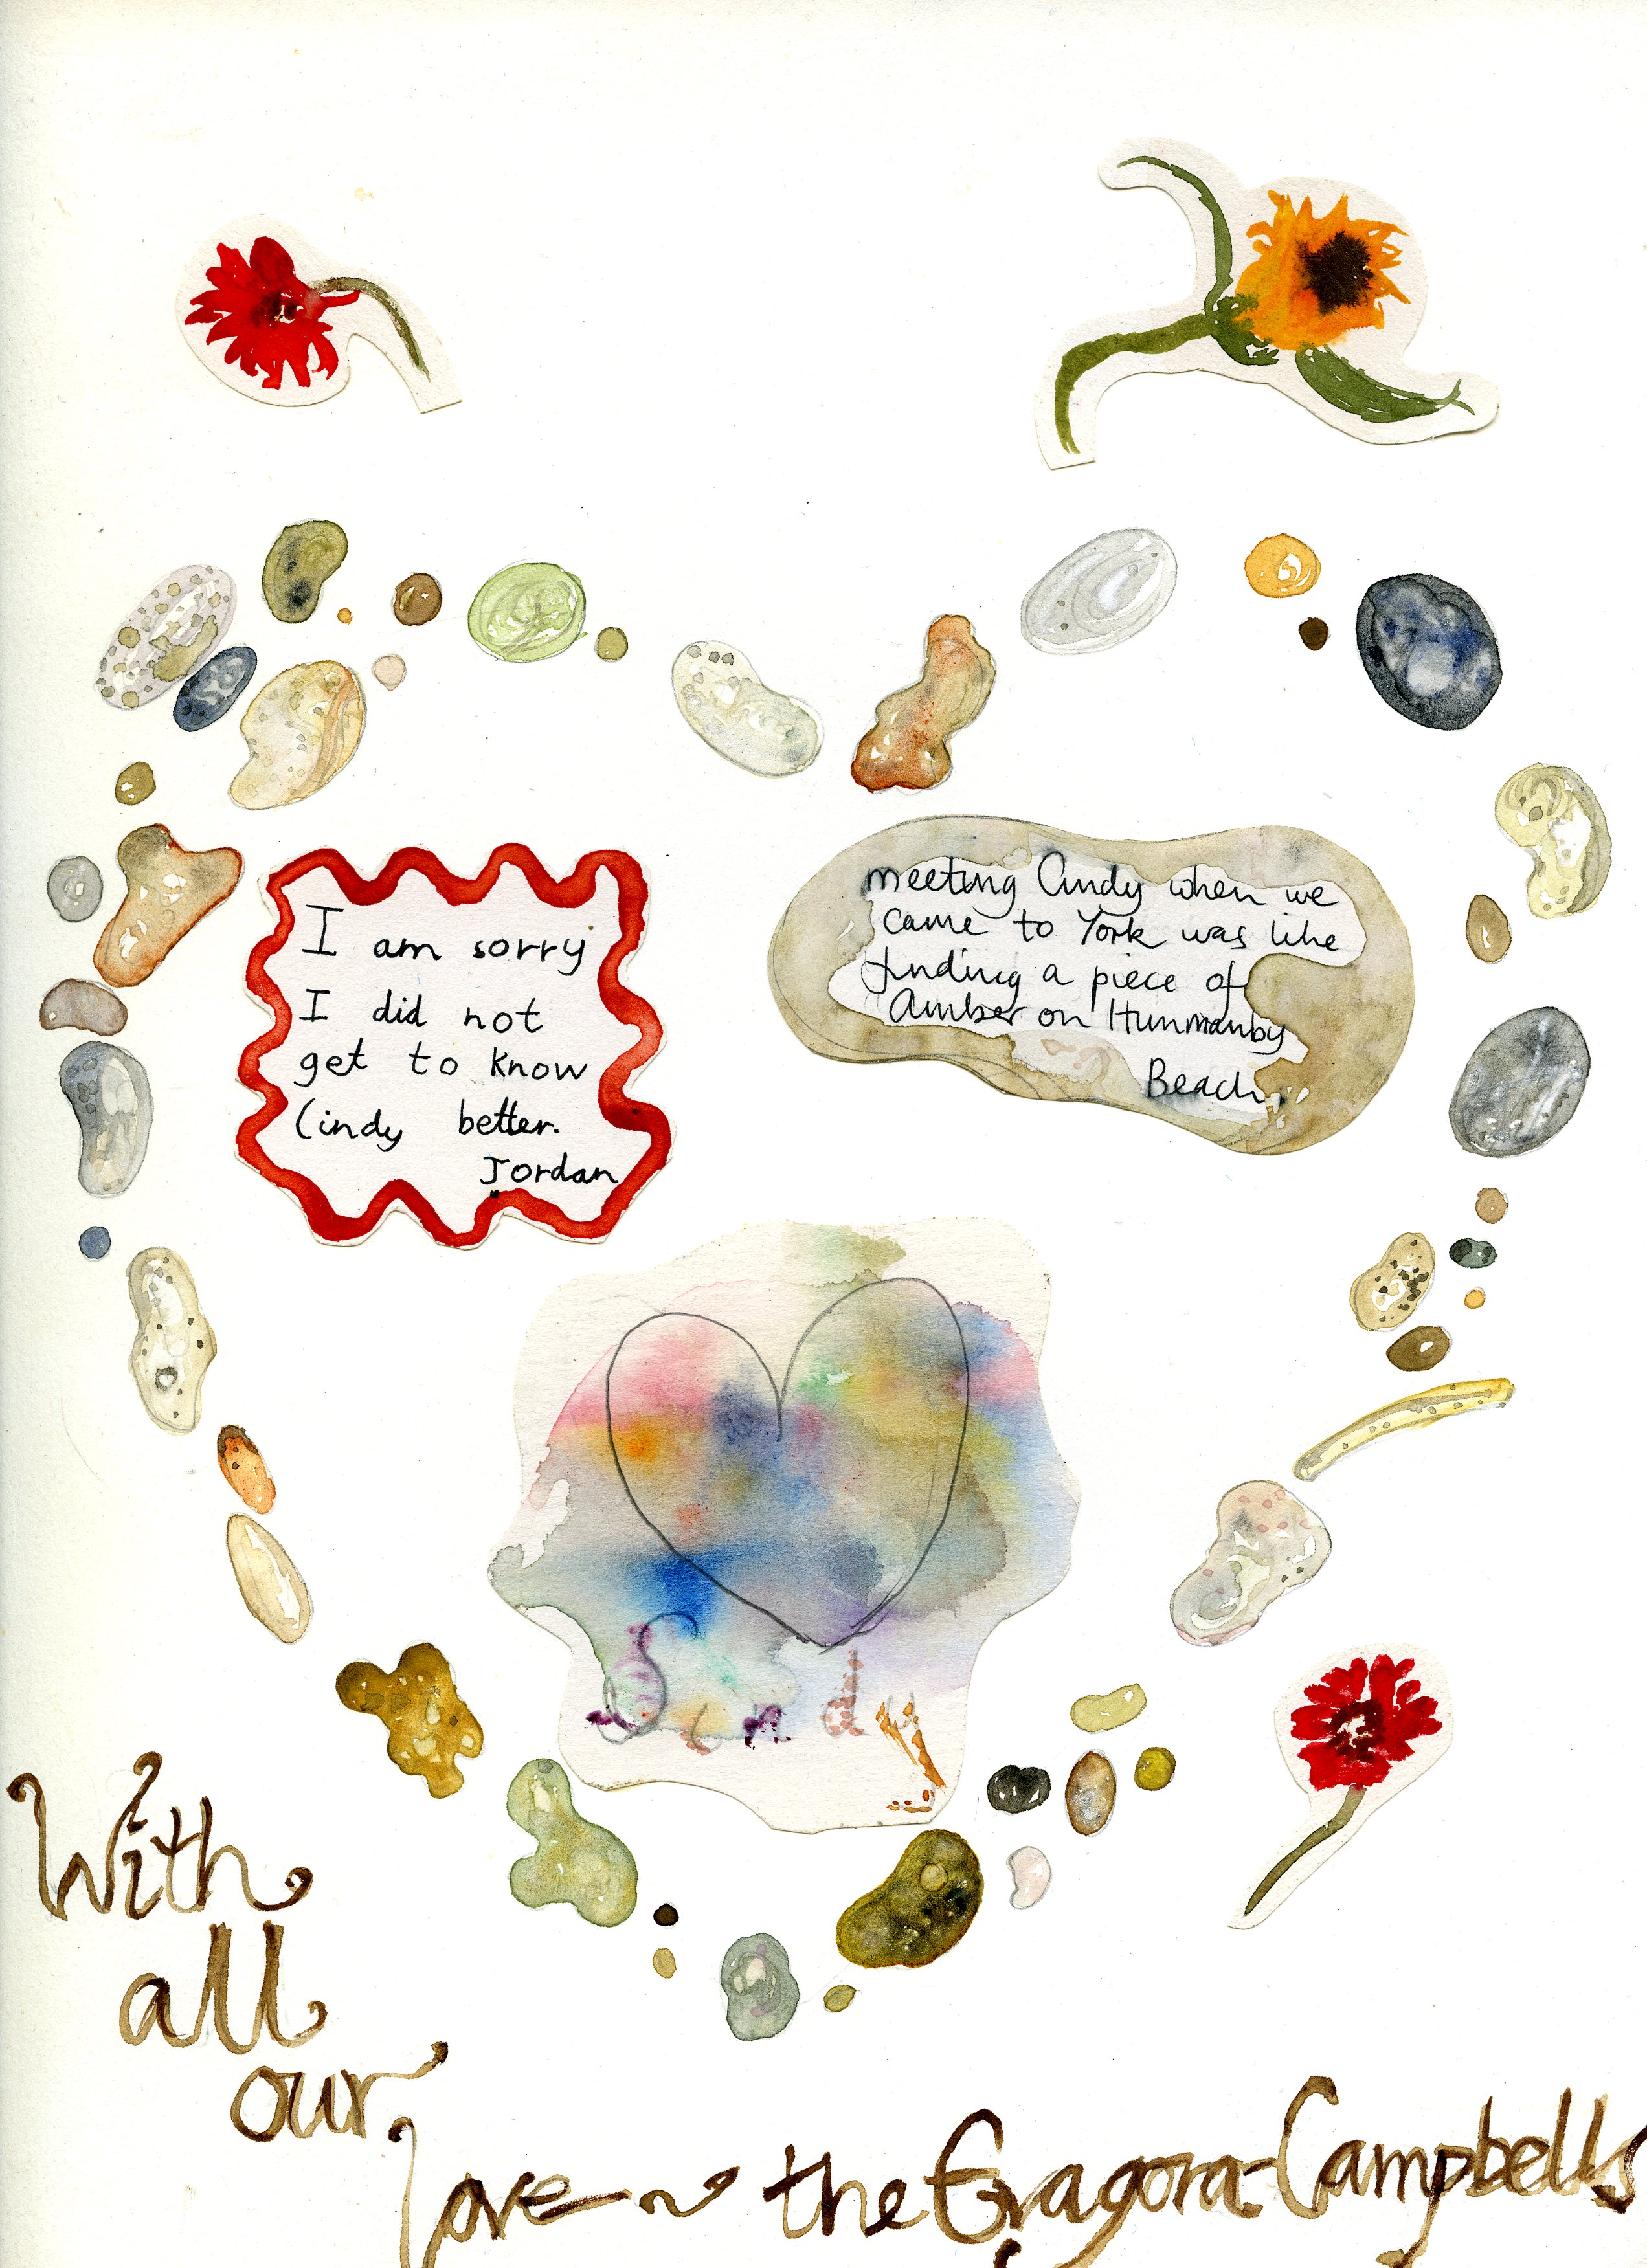 I am sorry
I did not
get to know
Cindy better.
Jordan
meeting Cindy when we
came to York was like
finding a piece of
Amber on Hunmanby
Beach.
With
all
our
love ~ the Gragora-Campbells